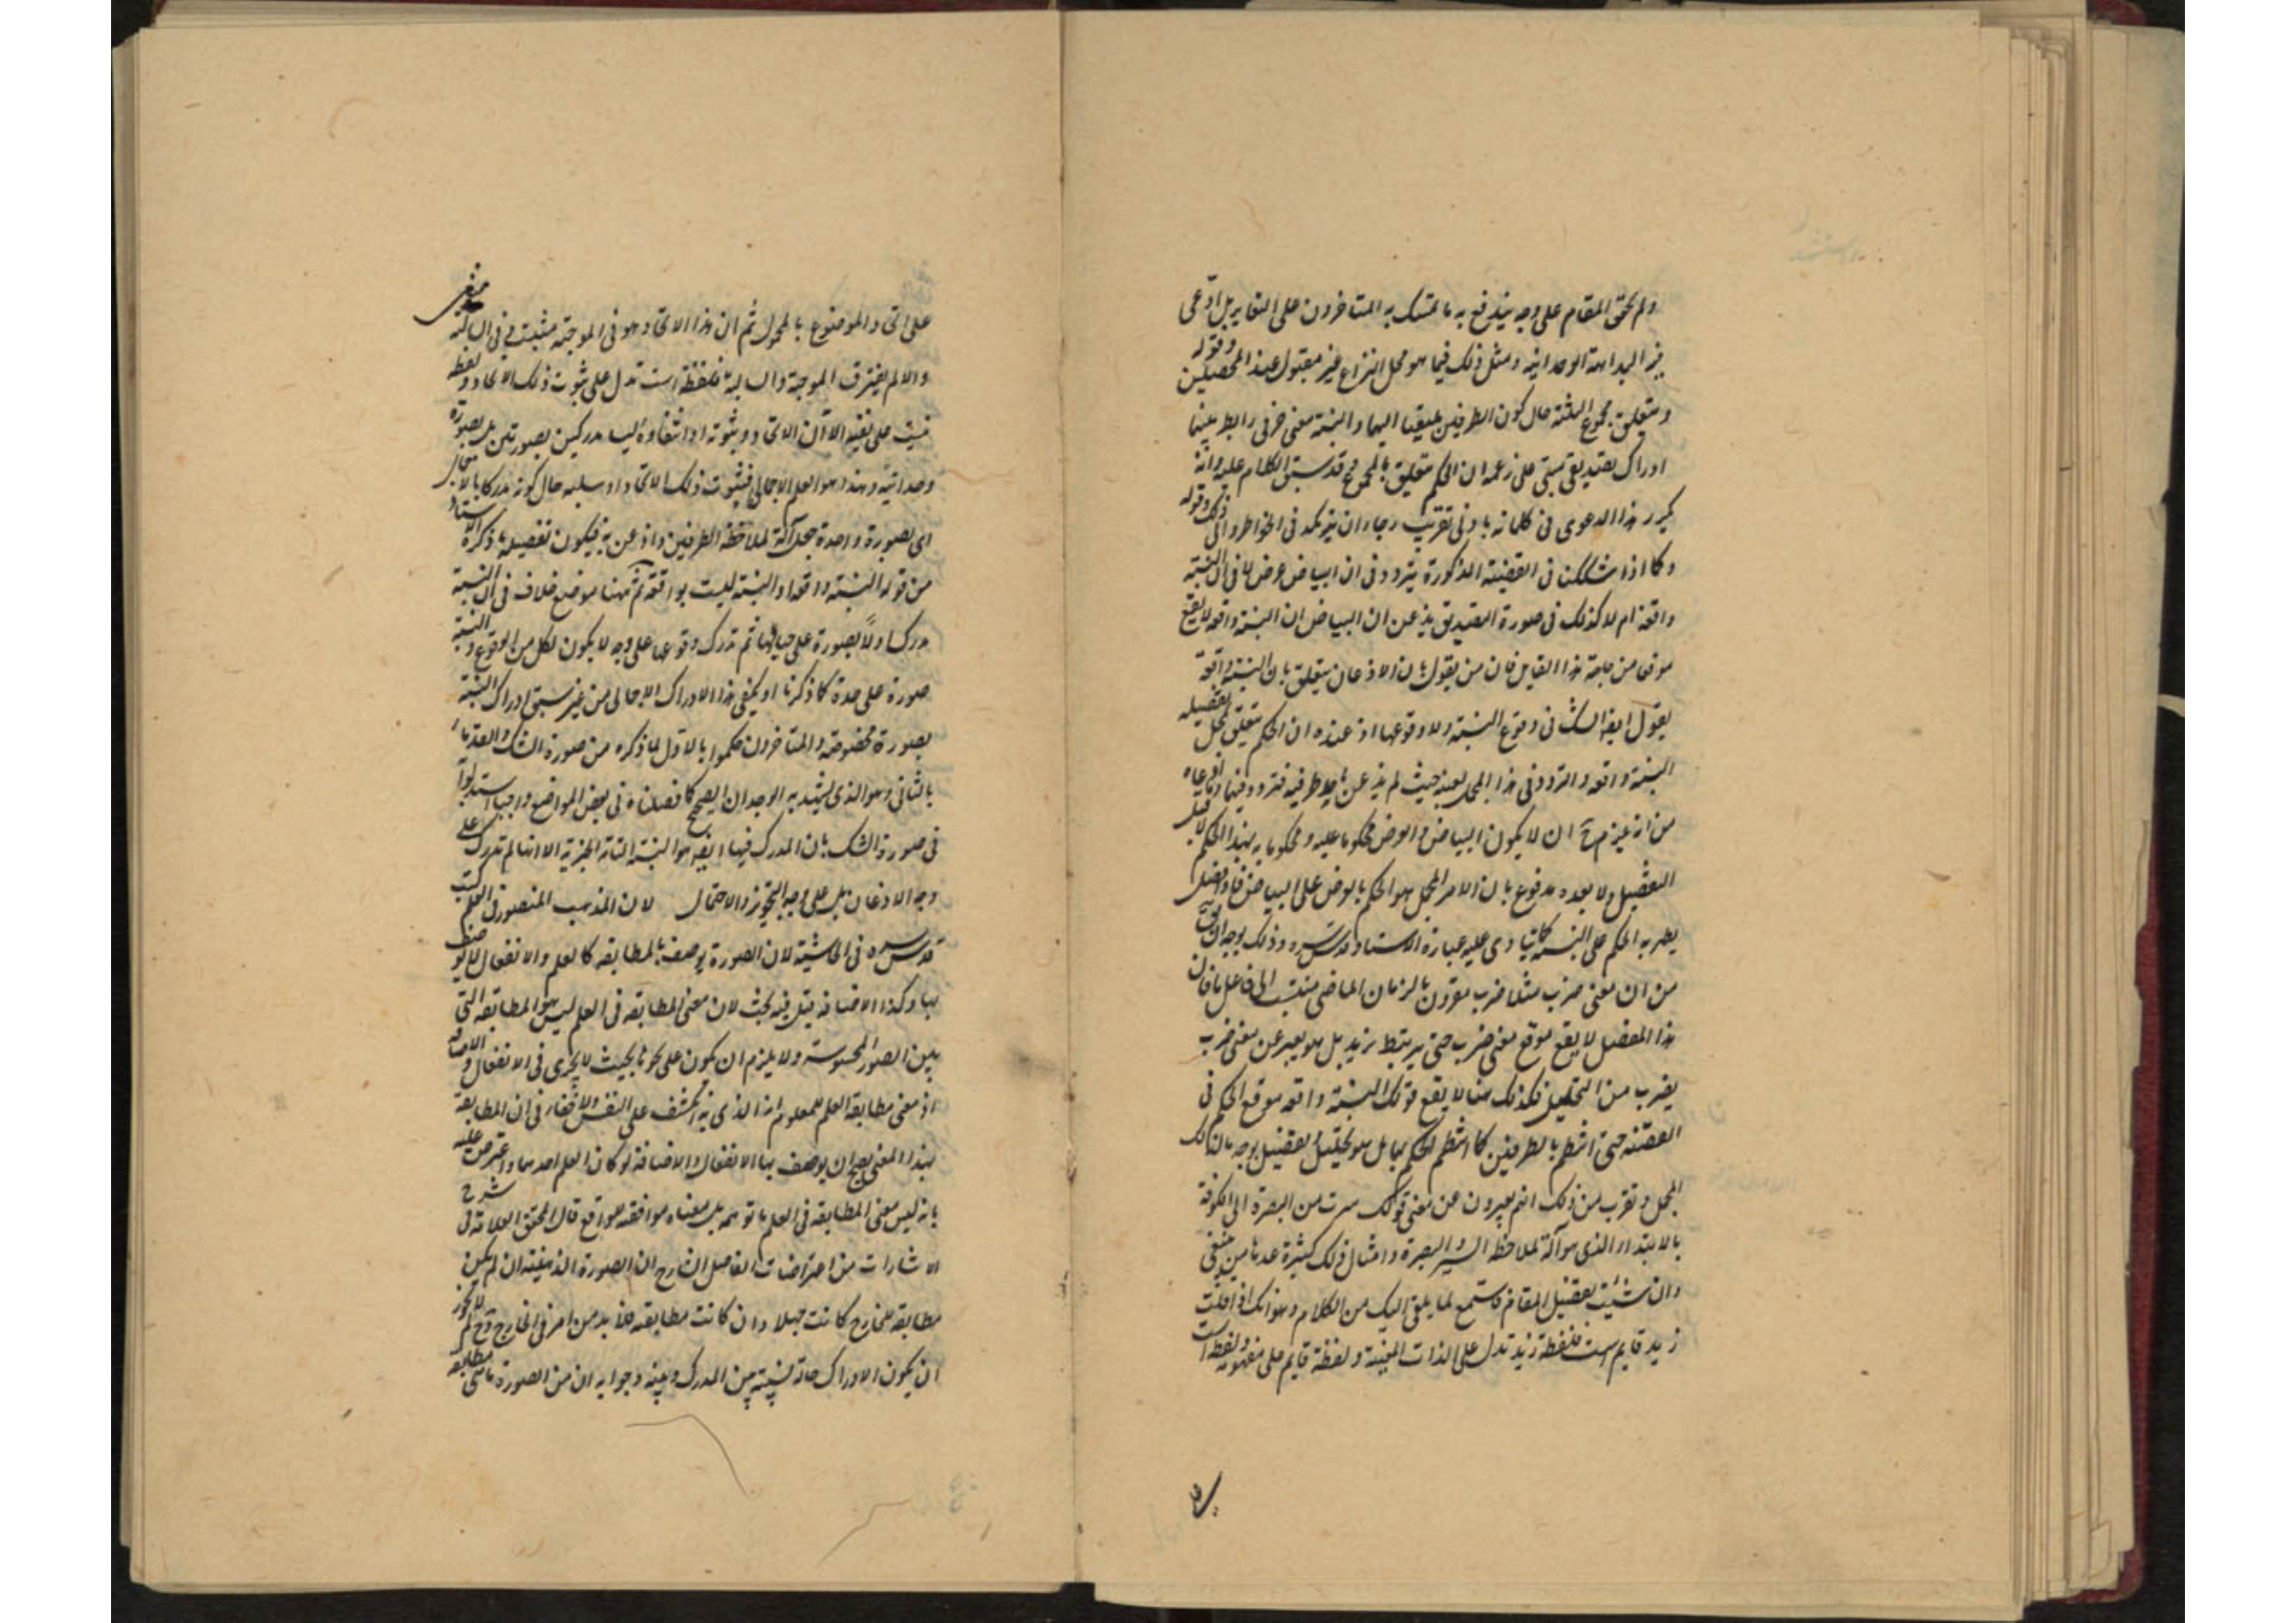 ولم يحقق المقام على وجه يندفع به ما تمسك به المتأخرون على التغاير بل ادعى
فيه البداهة الوجدانية ومثل ذلك فيما هو محل النزاع غير مقبول عند المحصلين وقوله
ويتعلق بمجموع الثلثة حال كون الطرفين اليهما والنسبة معنى حرفى رابط بينهما
ادراك تصديقى مبنى على زعمه ان الحكم متعلق بالمجموع وقد سبق الكلام عليه وانه
يكرر هذا الدعوى فى كلماته بادنى تقريب رجاء ان يتركد فى الخواطر والى ذلك وقوله
وكما اذا شككت فى القضية المذكورة يتردد فى ان البياض عرض لا فى ان النسبة
واقعة ام لا كذلك فى صورة التصديق يذعن ان البياض ان النسبة واقعة لا يقع
موقعا من جانب هذا القايل فان من يقول بان الاذعان يتعلق بان النسبة واقعة
يقول ايضا الشك فى وقوع النسبة ولا وقوعها اذ عنده ان الحكم يتعلق بمجمل تفصيله
النسبة واقعة والتردد فى هذا المجمل بعينه حيث لم يذعن باحد طرفيه فتردد فيهما وما ادعاه
من انه يلزم ح ان لا يكون البياض والعرض محكوما عليه ومحكوما به بهذا الحكم لا قبل
التفصيل ولا بعده مدفوع بان الامر المجمل هو الحكم بالعرض على البياض فاذا فصل
يصير به الحكم على النسبة كما ينادى عليه عبارة الاستاد قدس سره وذلك يوجه
من ان معنى ضرب مثلا ضرب مقرون بالزمان الماضى منتسب الى فاعل ما فان
هذا المفصل لا يقع موقع معنى ضرب حتى يرتبط بزيد بل هو يعبر عن معنى ضرب
بضرب من التحليل فكذلك هنا لا يقع قولك النسبة واقعة موقع الحكم فى
القضية حتى انتظم بالطرفين كما انتظم الحكم بهما بل هو تحليل وتفصيل بوجه ما لذلك
المجمل ويقرب من ذلك انهم يعبرون عن معنى قولك سرت من البصرة الى الكوفة
بالابتداء الذى هو آلة لملاحظة السير والبصرة وامثال ذلك كثيرة عندنا من
وان شئت تفصيل المقام فاستمع لما يلقى اليك من الكلام وهو انك اذا قلت
زيد قايم است فلفظة زيد تدل على الذات المعينة ولفظة قايم على مفهومه ولفظة است
على اتحاد الموضوع بالمحمول ثم ان هذا الاتحاد هو فى الموجبة مثبت وفى السالبة منفى
والا لم يفترق الموجبة والسالبة فلفظة است تدل على ثبوت ذلك الاتحاد ولفظة
نيست على نفيه الا ان الاتحاد وثبوته او انتفاوه ليسا مدركين بصورتين بل بصورة
وحدانية وهذا هو العلم الاجمالى فثبوت ذلك الاتحاد او سلبه حال كونه مدركا بالاجمال
اى بصورة واحدة جعل آلة لملاحظة الطرفين واذعن به فيكون تفصيله ما ذكره الاستاد
من قوله النسبة واقعة او النسبة ليست بواقعة ثم ههنا موضع خلاف فى ان النسبة
مدرك اولا بصورة على حيالها ثم تدرك وقوعها على وجه لا يكون لكل من الوقوع والنسبة
صورة على حدة كما ذكرنا او يكفى هذا الادراك الاجمالى من غير سبق ادراك النسبة
بصورة مخصوصة والمتأخرون حكموا بالاول لما ذكره من صورة الشك والقدماء
بالثانى وهو الذى يشهد به الوجدان الصحيح كما فصلناه فى بعض المواضع واجبنا استدلوا
فى صورة الشك بان المدرك فيها ايضا هو النسبة التامة الخبرية الا انها لم تدرك على
وجه الاذعان بل على وجه التجويز والاحتمال لان المذهب المنصور فى العلم كتب
قدس سره فى الحاشية لان الصورة يوصف بالمطابقة كالعلم والانفعال لا يوصف
بها وكذا الاضافة قيل فيه بحث لان معنى المطابقة فى العلم ليس هو المطابقة التى
بين الصور المحسوسة ولا يلزم ان يكون على نحو بحيث لا يجرى فى الانفعال والاضافة
اذ معنى مطابقة العلم للمعلوم انه الذى به انكشف على النفس ولا خفاء فى ان المطابقة
بهذا المعنى يصح ان يوصف بها الانفعال والاضافة لو كان العلم احدهما واعترض عليه
بانه ليس معنى المطابقة فى العلم ما توهمه بل معناه موافقته للواقع قال المحقق العلامة فى شرح
الاشارات من اعتراضات الفاضل الشارح ان الصورة الذهنية ان لم يكن
مطابقة للخارج كانت جهلا وان كانت مطابقة فلا بد من امر فى الخارج وح لم لا يجوز
ان يكون الادراك حالة نسبية بين المدرك وبينه وجوابه ان من الصورة ما هى مطابقة